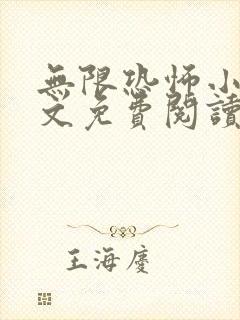 無限恐怖小
文免費閱讀
王海慶